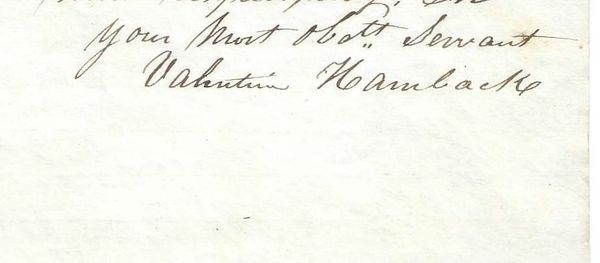 your Most Obdtt. Servant
Valentin Hamback